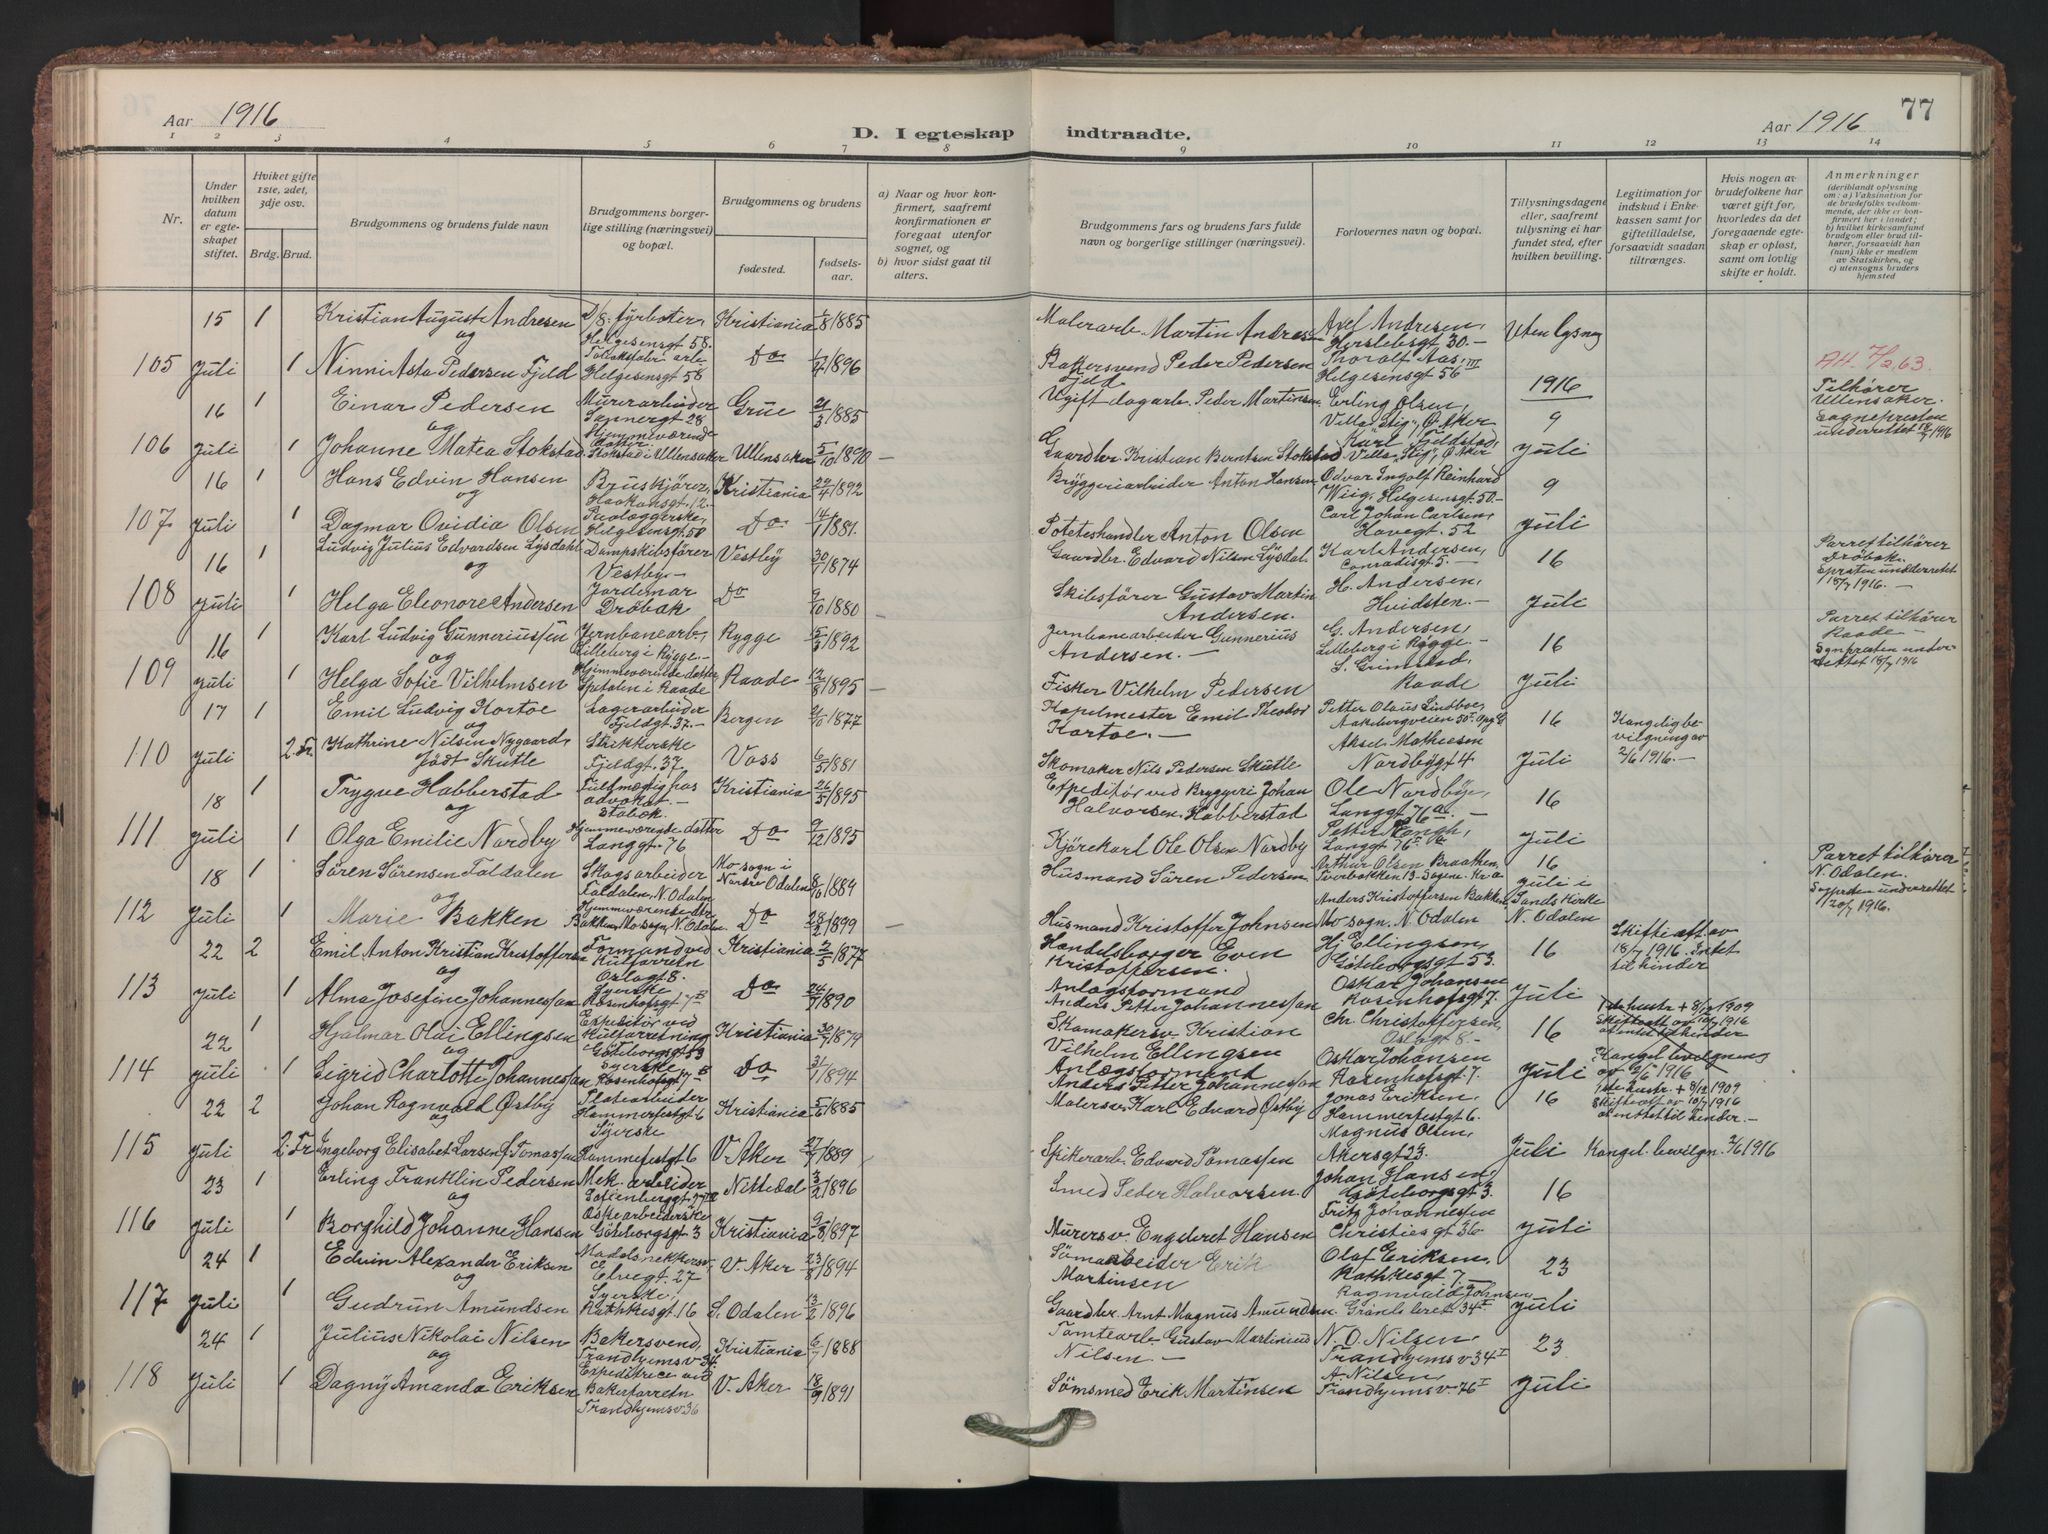 Aar 1916
D. I egteskap indtraadte.
Aar 1916
77
1 2 3 4 5 6 7 8 9 10 11 12 13 14
Nr.
Under hvilken datum er egteskapet stiftet.
Hviket gifte 1ste, 2det, 3dje osv.
Brdg. Brud.
Brudgommens og brudens fulde navn
Brudgommens borgerlige stilling (næringsvei) og bopæl.
Brudgommens og brudens
fødested.
fødselsaar.
a) Naar og hvor konfirmert, saafremt konfirmationen er foregaat utenfor sognet, og
b) hvor sidst gaat til alters.
Brudgommens fars og brudens fars fulde navn og borgerlige stillinger (næringsvei).
Forlovernes navn og bopæl.
Tillysningsdagene eller, saafremt tillysning ei har fundet sted, efter hvilken bevilling.
Legitimation for indskud i Enkekassen samt for giftetilladelse, forsaavidt saadan tiltrænges.
Hvis nogen av brudefolkene har været gift før, hvorledes da det foregaaende egteskap er opløst, samt om lovlig skifte er holdt.
Anmerkninger
(deriblandt oplysning om: a) Vaksination for de brudefolks vedkommende, der ikke er konfirmert her i landet; b) hvilket kirkesamfund brudgom eller brud tilhører, forsaavidt han (hun) ikke er medlem av Statskirken, og c) utensogns bruders hjemsted
15 1 Kristian August Andresen D/S. fyrbøter, Helgesensgt 58. Kristiania 1/8 1885 Malerarb. Martin Andresen Axel Andresen, Herslebsgt 30.- Uten lysng
og
105 Juli 1 Ninni Asta Pedersen Fjeld Helgesensgt 58 Do 1896 Bakersvend Peder Pedersen Fjeld Thoralf Aas, Helgesensgt 56 III
1916
16 1 Einar Pedersen Murerarbeider Sannergt 28 Grue 21/3 1885 Ugift dagarb. Peder Martinsen Erling Olsen, Villa "Stig", Ø. Aker 9 Tilhører Ullensaker. Sognepresten underrettet 18/7 1916
og
106 Juli 1 Johanne Matea Stokstad Hjemmeværende datter Stokstad i Ullensaker Ullensaker 5/10 1890 Gaardbr. Kristian Berntsen Stokstad Karl Fjeldstad, Villa "Stig", Ø. Aker Juli
16 1 Hans Edvin Hansen Bruskjører, Haakonsgt. 12 Kristiania 22/4 1892 Bryggeriarbeider Anton Hansen Odvar Ingolf Reinhard Wiig, Helgesensgt 50- 9
og
107 Juli 1 Dagmar Ovidia Olsen Helgesensgt. 58 Do 14/1 1881. Poteteshandler Anton Olsen Carl Johan Carlsen, Havegt. 52 Juli
16 1 Ludvig Julius Edvardsen Lysdahl Dampskibsfører Vestby.- Vestby 30/1 1874 Gaardbr. Edvard Nilsen Lysdal Karl Andersen, Conradisgt 5.- 16 Parret tilhører Drøbak Sprsten underrettet 18/7 1916.-
og
108 Juli 1 Helga Eleonore Andersen Jordemor Drøbak Do 9/10 1880 Skibsfører Gustav Martin Andersen. H. Andersen, Hvidsten.- Juli
16 1 Karl Ludvig Gunneriussøn Jernbanearb., Lilleberg i Rygge.- Rygge 15/3 1892 Jernbanearbeider Gunnerius Andersen.- G. Andersen, Lilleberg i Rygge.- 16 Parret tilhører Raade - Sgnpresten underrettet 18/7 1916
og
109 Juli 1 Helga Sofie Vilhelmsen Hjemmeværende datter, Spetalen i Raade Raade 12/8 1895 Fisker Vilhelm Pedersen S. Grimstad, Raade Juli
17 1 Emil Ludvig Kortoe Lagerarbeider Fjeldgt. 37.- Bergen 1877 Kapelmester Emil Theodor Kortoe.- Petter Olaus Lindboe, Aakebergveien 50 I Opg. G 16 Kongelig bevilgning av 2/6 1916.-
og
110 Juli 2. Fr. Kathrine Nilsen Nygaard, født Skutle Strikkerske Fjeldgt. 37 Voss 6/5 1881 Skomaker Nils Pedersen Skutle Aksel Mathiesen Nordbygt 4 Juli
18 1 Trygve Habberstad Fuldmægtig hos advokat.- Stabæk Kristiania 26/5 1895 Expeditør ved Bryggeri Johan Halvorsen Habberstad Ole Nordbye, Langgt 76 a.- 16
og
111 Juli 1 Olga Emilie Nordby Hjemmeværende datter Langgt. 76 Do 9/12 1895 Kjørekarl Ole Olsen Nordby Petter Langgt 76 Juli
18 1 Søren Sørensen Faldalen Skogsarbeider Faldalen, N. Odalen Mo sogn i Nordre Odalen 8/10 1889 Husmand Søren Pedersen Arthur Olsen Braathen, Tverbakken 13- Sagene. Kr.a 16 Parret tilhører N. Odalen. Sgnprsten underrettet 20/7 1916.
og
112 Juli 1 Marie Bakken Hjemmeværende dtr Bakken, Mo sogn, N. Odalen Do 28/2 1899 Husmand Kristoffer Johnsen Anders Kristoffersen Bakken Mo sogn, N. Odalen Juli i Sands Kirke N. Odalen
22 2 Emil Anton Kristian Kristoffersen Formand ved Kulforretn Oslogt 8. Kristiania 2/5 1877 Handelsborger Even Kristoffersen. Hj. Ellingsen, Göteborgsgt 53. 16 Skifteatt av 18/7 1916. Intet til hinder
og
113 Juli 1 Alma Josefine Johannessen Syerske Rosenhofsgt 7 B Do 24/7 1890 Anlægsformand Anders Petter Johannessen Oskar Johansen Rosenhofsgt 7. Juli
22 1 Hjalmar Olai Ellingsen Expeditør ved Kulforretning Göteborgsgt 53 Kristiania 30/7 1879 Skomakersv. Kristian Vilhelm Ellingsen Chr. Christoffersen, Oslogt 8.- 16
og
114 Juli 1 Sigrid Charlotte Johannessen Syerske Rosenhofsgt 7 B Do 3/1 1894 Anlægsformand Anders Petter Johannessen Oskar Johansen Rosenhofsgt 7. Juli Kongel. bevilgning av 2/6 1916
22 2 Johan Ragnvald Østby Platearbeider Hammerfestgt 6 Kristiania 5/6 1885 Malersv. Karl Edvard Østby Jonas Eriksen, Hammerfestgt 6. 16 1ste hustr. + 8/12 1909 Skifteatt av 10/7 1916 om intet til hinder.-
og
115 Juli 2. Fr Ingeborg Elisabet Larsen f. Tomassen Syerske Hammerfestgt 6 V. Aker 27/7 1889 Spikerarb. Edvard Tomassen Magnus Olsen, Akersgt 23. Juli Kongel. bevilgn. 2/6 1916
23 1 Erling Franklin Pedersen Mek. arbeider Sofienberggt 77 Nittedal 3/2 1896 Smed Peder Halvorsen. Johan Hansen Göteborgsgt 3. 16
og
116 Juli 1 Borghild Johanne Hansen Eskearbeiderske Göteborgsgt 3 Kristiania 9/8 1897 Murersv. Engebret Hansen Fritz Johannessen Christiesgt 36 Juli
24 1 Edvin Alexander Eriksen Modelsnekkersv. Elvegt. 27 V. Aker 23/8 1894 Sømarbeider Erik Martinsen Olaf Eriksen, Rathkesgt 7.- 23
og
117 Juli 1 Gudrun Amundsen Syerske, Rathkesgt 16 S. Odalen 13/2 1896 Gaardbr. Arnt Magnus Amundsen. Ragnvald Johnsen Grønlandsleret 34 I Juli
24 1 Julius Nikolai Nilsen Bakersvend, Trondhjemsv 34. Kristiania 6/7 1888 Tomtearb. Gustav Martinius Nilsen.- N. O. Nilsen, Trondhjemsv 34 I 23
og
118 Juli 1 Dagny Amanda Eriksen Expeditrice ved Bakerforretn Trondhjemsv 36 V. Aker 18/9 1891 Sømsmed Erik Martinsen A Nilsen, Trondhjemsv 76 I Juli